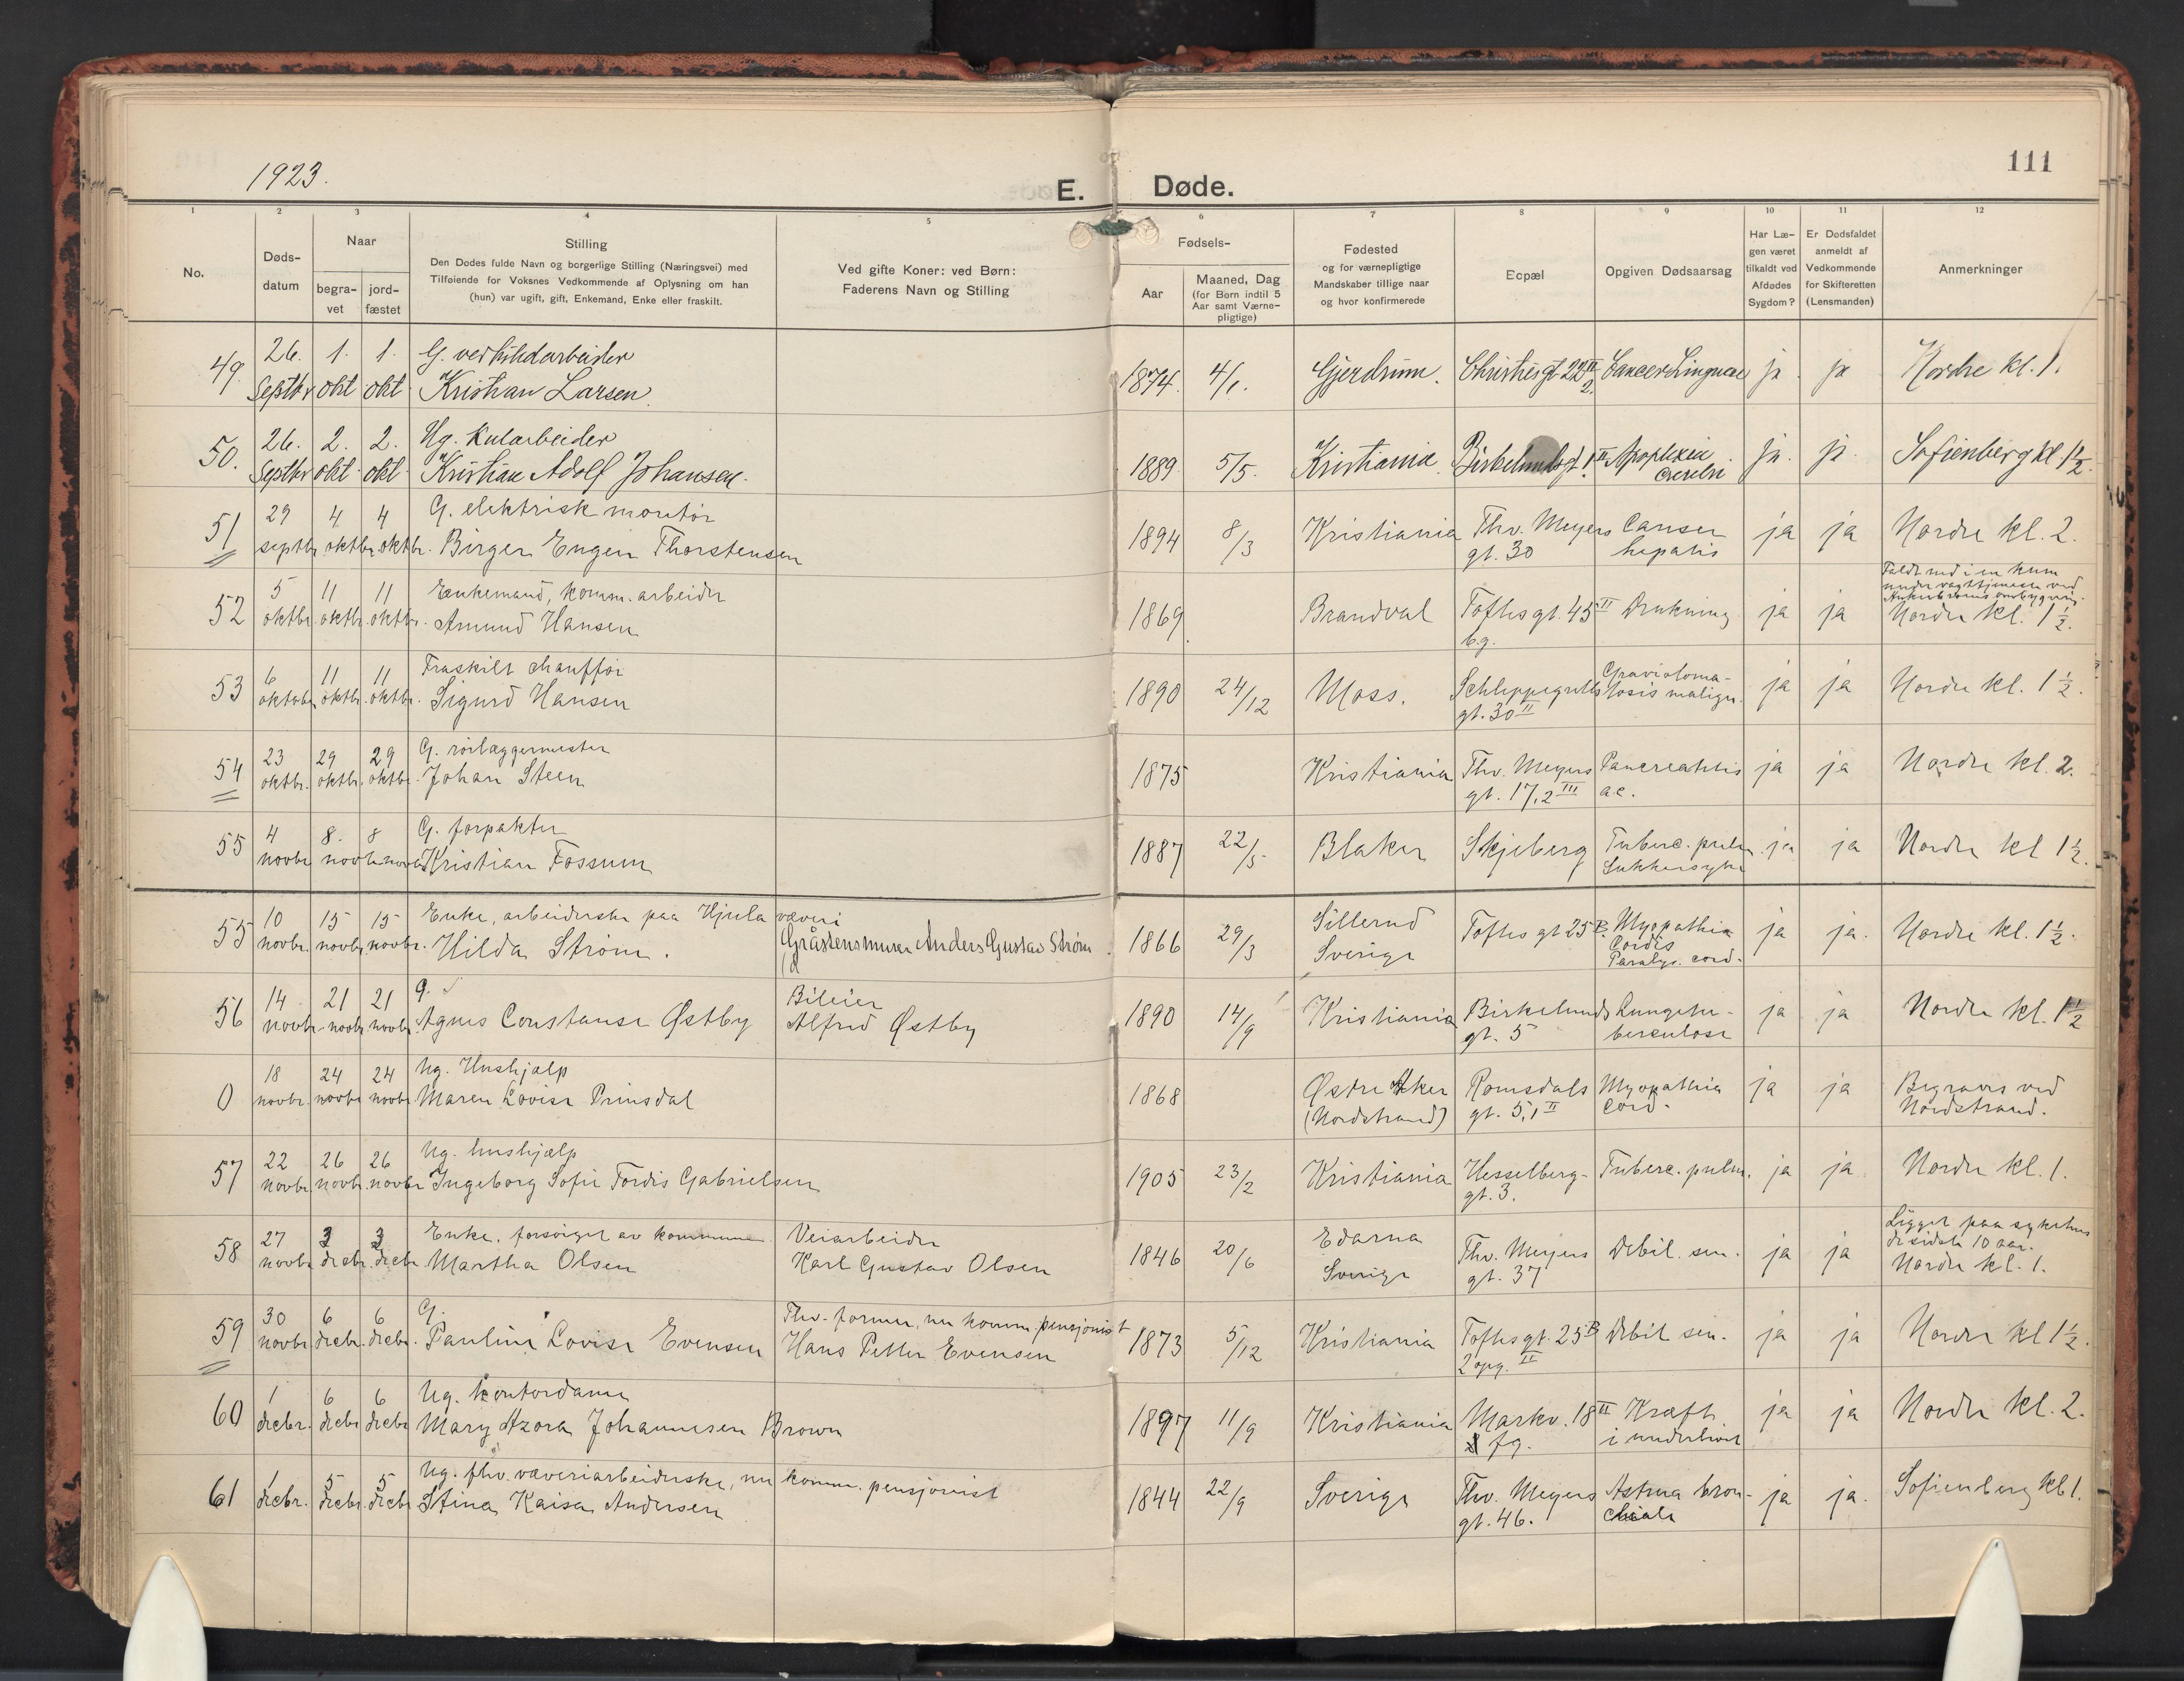 1923.
E. Døde.
111
1 2 3 4 5 6 7 8 9 10 11 12
No.
Døds-
datum
Naar
begra-
vet
jord-
fæstet
Stilling
Den Dødes fulde Navn og borgerlige Stilling (Næringsvei) med
Tilføiende for Voksnes Vedkommende af Oplysning om han
(hun) var ugift, gift, Enkemand, Enke eller fraskilt.
Ved gifte Koner: ved Børn:
Faderens Navn og Stilling
Fødsels-
Aar
Maaned, Dag
(for Børn indtil 5
Aar samt Værne-
pligtige)
Fødested
og for værnepligtige
Mandskaber tillige naar
og hvor konfirmerede
Ecpæl
Opgiven Dødsaarsag
Har Læ-
gen været
tilkaldt ved
Afdødes
Sygdom?
Er Dødsfaldet
anmeldt af
Vedkommende
for Skifteretten
(Lensmanden)
Anmerkninger
49. 26. Septbr 1. okt 1. okt G. verkstedarbeider
Kristian Larsen 1874. 4/1. Gjerdrum. Christies gt 22 II 2. Cancer Linguae ja ja Nordre kl. 1.
50. 26. Septbr 2. okt 2. okt Ug. Kularbeider
Kristian Adolf Johansen. 1889. 5/5. Kristiania Birkelundsgt. 1 II Apoplexia cerebri ja ja Sofienberg kl. 1½.
51 29 septbr. 4 oktbr. 4 oktbr. G. elektrisk montør
Birger Engen Thorstensen 1894 8/3 Kristiania Thv. Meyers gt. 30 Canser hepatis ja ja Nordre kl. 2.
52 5 oktbr. 11 oktbr. 11 oktbr. Enkemand, komm. arbeider
Amund Hansen 1869. Brandval Toftesgt. 45 II b.g. Drukning ja ja Faldt ned i en kum
under vagttjeneste ved
Nordre kl. 1½.
53 6 oktober 11 oktbr. 11 oktbr. Fraskilt chauffør
Sigurd Hansen 1890 24/12 Moss. Schleppegrells gt. 30 II malign. ja ja Nordre kl. 1½.
54 23 oktbr. 29 oktbr. 29 oktbr. G. rørlæggermester
Johan Steen 1875 Kristiania Thv. Meyers gt. 17,2 III Pancreatitis ac. ja ja Nordre kl. 2.
55 4 novbr 8. novbr 8 novbr G. forpakter
Kristian Fossum 1887 22/5 Blaker Skjeberg Tuberc. pulm. Sukkersyke ja ja Nordre kl 1½.
55 10 novbr. 15 novbr. 15 novbr. Enke, arbeiderske paa Hjula væveri
Hilda Strøm. Gråstensmurer Anders Gustav Strøm 1866 29/3 Sillerud Sverige Toftes gt 25 B. Myopathia Cordis Paralys. cord. ja ja. Nordre kl. 1½.
56 14 novbr. 21 novbr 21 novbr. g.
Agnes Constanse Østby Bileier Alfred Østby 1890 14/9 Kristiania Birkelunds gt. 5 Lungetu- berculose ja ja Nordre kl. 1½
0 18 novbr. 24 novbr 24 novbr Ug. Hushjælp
Maren Lovise Prinsdal 1868 Østre Aker (Nordstrand) Romsdals gt. 5,1 II Myopathia cord. ja ja Begraves ved Nordstrand.
57 22 novbr. 26 novbr. 26 novbr Ug. hushjælp
Ingeborg Sofie Tordis Gabrielsen 1905 23/2 Kristiania Hesselberg- gt. 3. Tuberc. pulm. ja ja Nordre kl. 1.
58 27 novbr 3 decbr. 3 decbr Enke. forsørget av kommunen
Martha Olsen Veiarbeider Karl Gustav Olsen 1846 20/6 Edarna Sverige Thv. Meyers gt. 37 Debil. sen. ja ja Ligget paa sykehus
de sidste 10 aar.
Nordre kl. 1.
59 30 novbr. 6 decbr. 6 decbr. G.
Pauline Lovise Evensen Fhv. former, nu komm. pensjonist Hans Petter Evensen 1873 5/12 Kristiania Toftesgt. 25 B 2 opg. II Debil sen. ja ja Nordre kl 1½.
60 1 decbr. 6 decbr 6 decbr Ug. kontordame
Mary Azora Johannesen Brown 1897 11/9 Kristiania Markv. 18 II fg. Kræft i underlivet ja ja Nordre kl. 2.
61 1 decbr. 5 decbr. 5 decbr Ug. fhv. væveriarbeiderske, nu komm. pensjonist
Stina Kaisa Andersen 1844 22/9 Sverige Thv. Meyers gt. 46. Astma bron- chiale ja ja. Sofienberg kl 1.